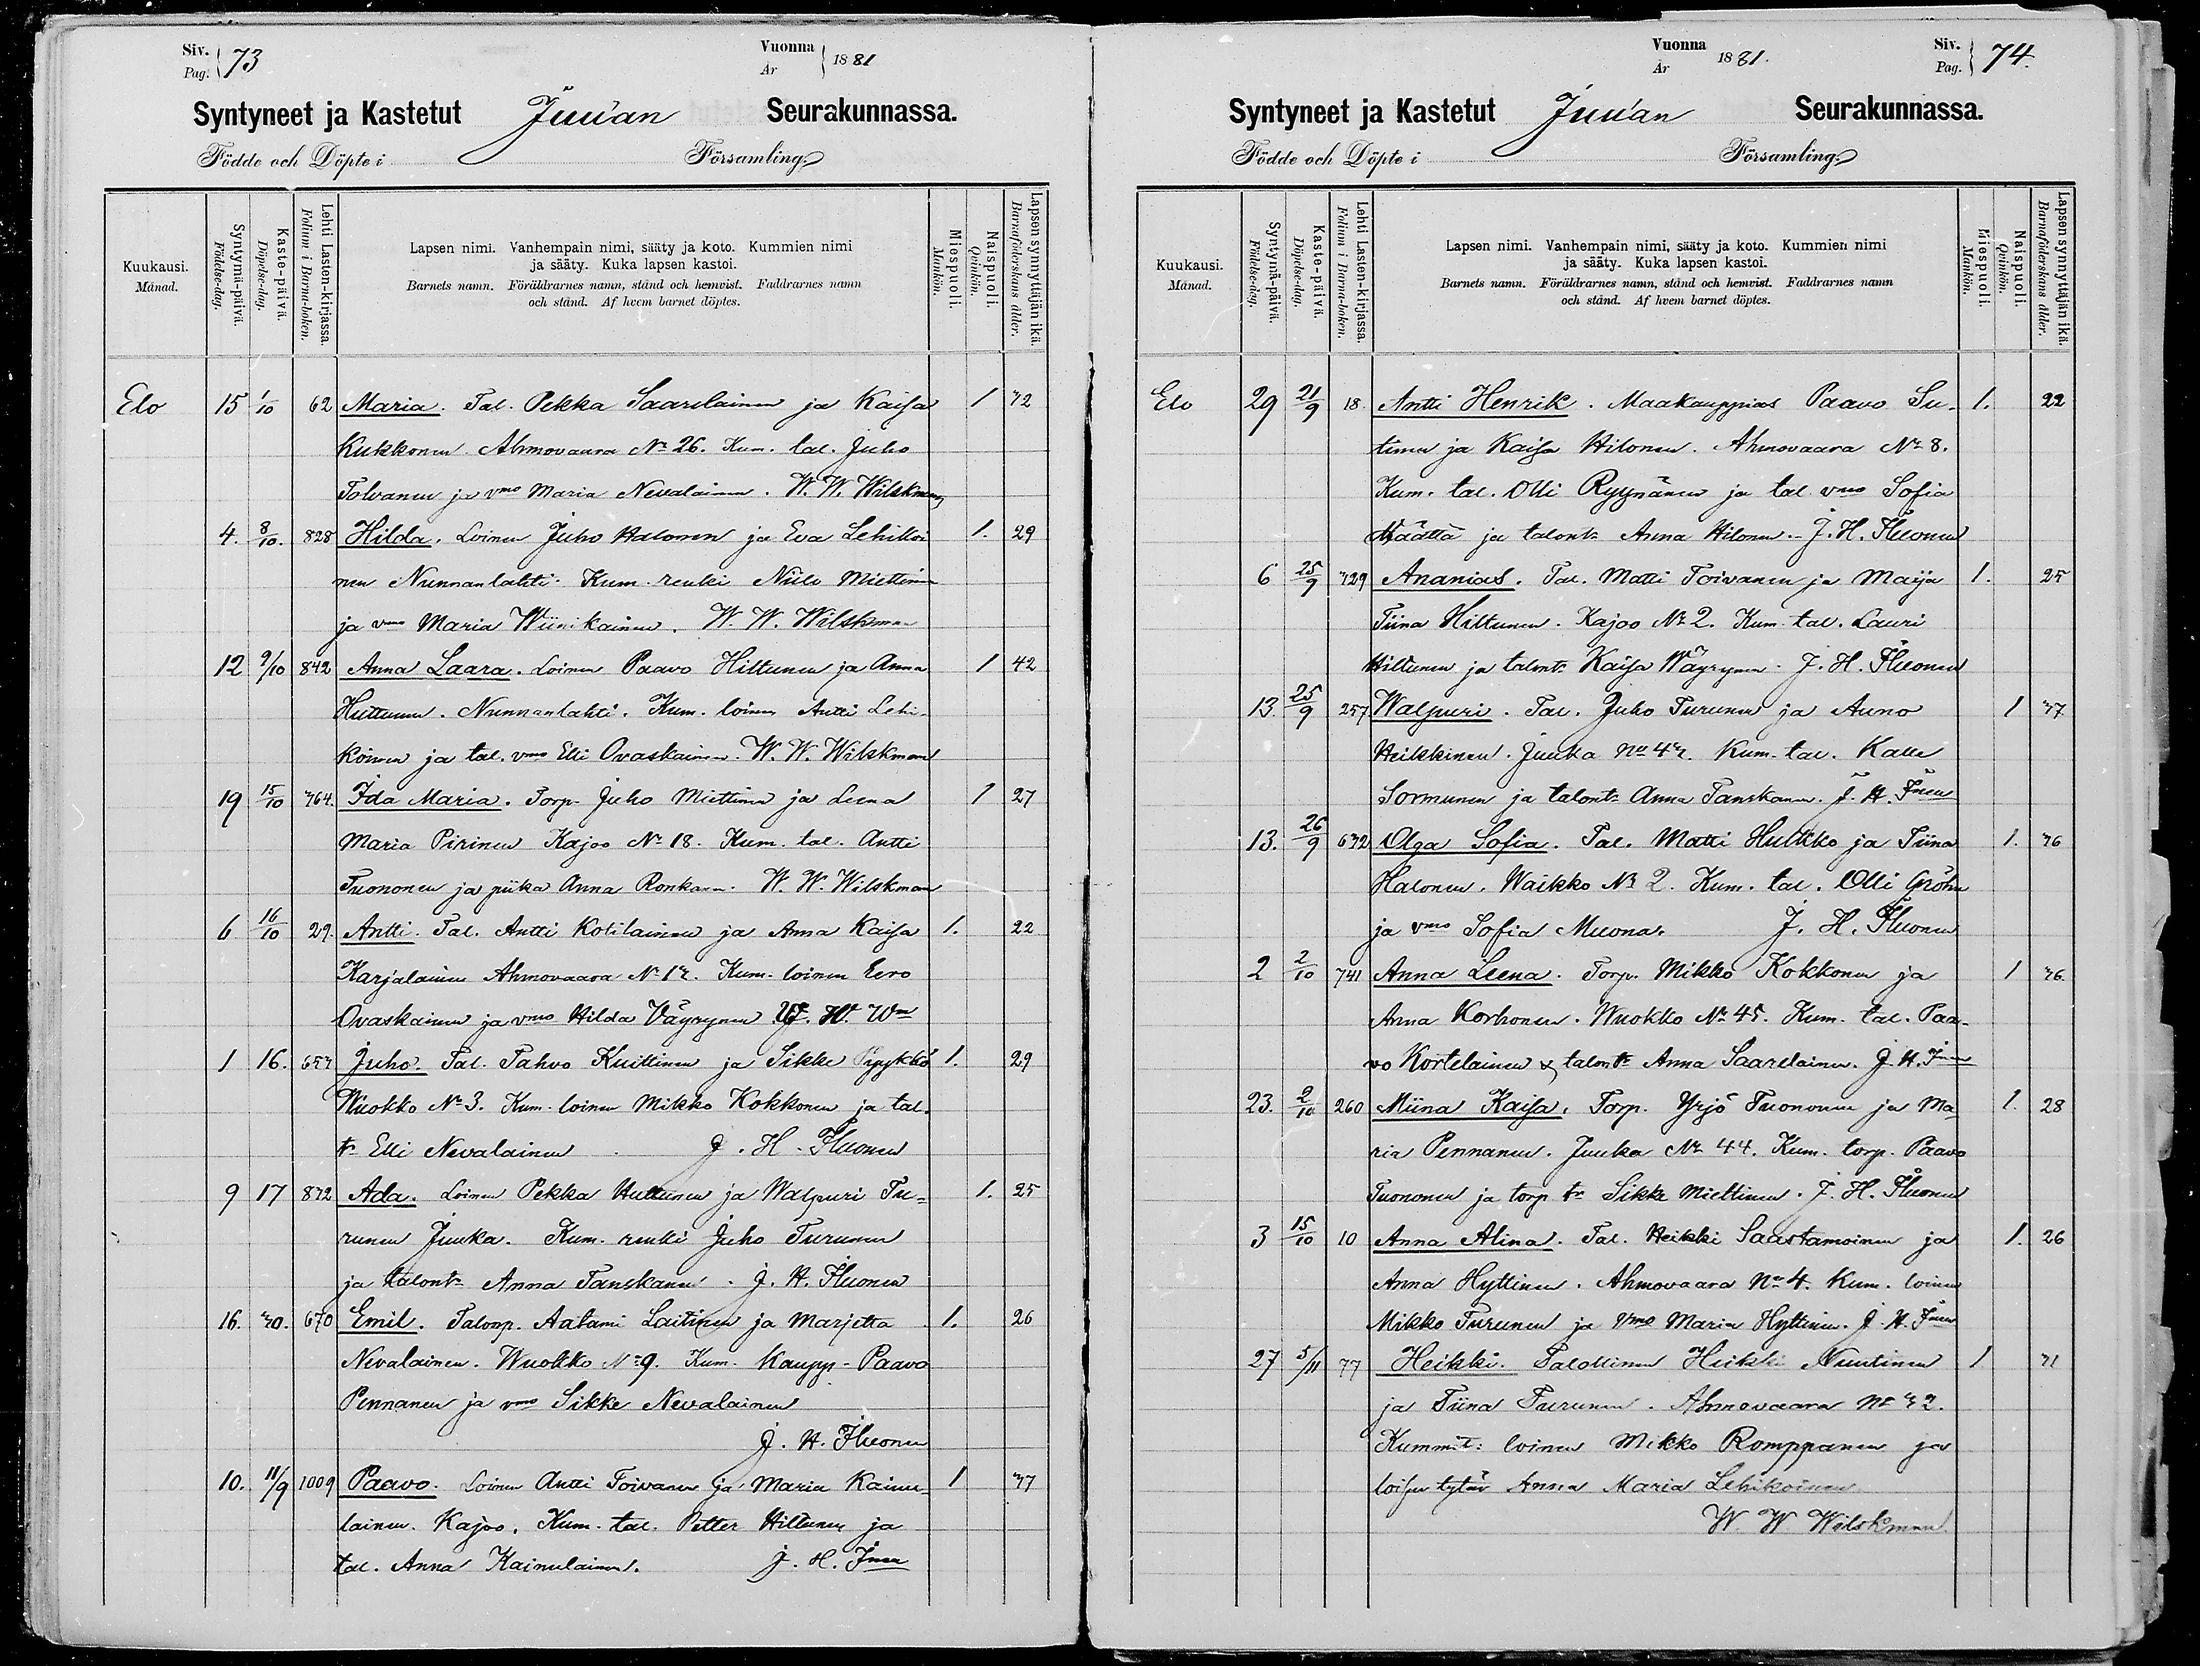 Siv. Pag. 73
Vuonna År 1881
Syntyneet ja Kastetut Juu'an Seurakunnassa.
Födde och Döpte i Församling.
Kuukausi. Månad.
Syntymä-päivä. Födelse-dag.
Kaste-päivä. Döpelse-dag.
Lehti Lasten-kirjassa. Folium i Barna-boken.
Lapsen nimi. Vanhempain nimi, sääty ja koto. Kummien nimi
ja sääty. Kuka lapsen kastoi.
Barnets namn. Föräldrarnes namn, stånd och hemvist. Faddrarnes namn
och stånd. Af hvem barnet döptes.
Miespuoli. Mankön.
Naispuoli. Qvinkön.
Lapsen synnyttäjän ikä. Barnaföderskans ålder.
Elo 15 1/10 62 Maria. Tal. Pekka Saarelainen ja Kaisa 1 32
Kukkonen Ahmovaara No 26. Kum. tal. Juho
Tolvanen ja vmo Maria Nevalainen. W. W. Wilskman
4. 8/10. 828 Hilda. Loinen Juho Halonen ja Eva Lehikoi 1. 29
nen Nunnanlahti. Kum. renki Niilo Miettinen
ja vmo Maria Wiinikainen. W. W. Wilskman
12 9/10 842 Anna Laara. Loinen Paavo Hiltunen ja Anna 1 42
Huttunen. Nunnanlahti. Kum. loinen Antti Lehi-
koinen ja tal. vmo Elli Ovaskainen. W. W. Wilskman
19 15/10 764. Ida Maria. Torp. Juho Miettinen ja Leena 1 27
Maria Pirinen Kajoo No 18. Kum. tal. Antti
Tuononen ja piika Anna Ronkanen. W. W. Wilskman
6 16/10 29. Antti. Tal. Antti Kotilainen ja Anna Kaisa 1. 22
Karjalainen Ahmovaara No 13. Kum. loinen Eero
Ovaskainen ja vmo Hilda Väyrynen W. W. Wm
1 16. 653 Juho. Tal. Tahvo Kuittinen ja Sikke Pyykkö 1. 29
Wuokko No 3. Kum. loinen Mikko Kokkonen ja tal.
tr Elli Nevalainen J. H.
9 17 832 Ada. Loinen Pekka Huttunen ja Walpuri Tu= 1. 25
runen Juuka. Kum. renki Juho Turunen
ja talontr Anna Tanskanen. J. H.
16. 30. 670 Emil. Talonp. Aatami Laitinen ja Marjetta 1. 26
Nevalainen. Wuokko No 9. Kum. Kaupp. Paavo
Pennanen ja vmo Sikke Nevalainen
J. H.
10. 11/9 1009 Paavo. Loinen Antti Toivanen ja Maria Kainu- 1 37
lainen. Kajoo. Kum. tal. Petter Hiltunen ja
tal. Anna Kainulainen. J. H.
Vuonna År 1881.
Siv. Pag. 74.
Syntyneet ja Kastetut Juu'an Seurakunnassa.
Födde och Döpte i Församling.
Kuukausi. Månad.
Syntymä-päivä. Födelse-dag.
Kaste-päivä. Döpelse-dag.
Lehti Lasten-kirjassa. Folium i Barna-boken.
Lapsen nimi. Vanhempain nimi, sääty ja koto. Kummien nimi
ja sääty. Kuka lapsen kastoi.
Barnets namn. Föräldrarnes namn, stånd och hemvist. Faddrarnes namn
och stånd. Af hvem barnet döptes.
Miespuoli. Mankön.
Naispuoli. Qvinkön.
Lapsen synnyttäjän ikä. Barnaföderskans ålder.
Elo 29 21/9 18. Antti Henrik. Maakauppias Paavo Su- 1. 22
tinen ja Kaisa Hilonen. Ahmovaara No 8.
Kum. tal. Olli Ryynänen ja tal. vmo Sofia
Määttä ja talontr Anna Hilonen. J. H.
6 25/9 329 Ananias. Tal. Matti Toivanen ja Maija 1. 25
Tiina Hiltunen. Kajoo No 2. Kum. tal. Lauri
Hiltunen ja talontr Kaisa Wäyrynen. J. H.
13. 25/9 257 Walpuri. Tal. Juho Turunen ja Auno 1 37
Heikkinen. Juuka No 43. Kum. tal. Kalle
Sormunen ja talontr Anna Tanskanen. J. H.
13. 26/9 632 Olga Sofia. Tal. Matti Hulkko ja Tiina 1. 36
Halonen. Waikko No 2. Kum. tal. Olli Gröhn
ja vmo Sofia Muona. J. H.
2 2/10 741 Anna Leena. Torp. Mikko Kokkonen ja 1 36.
Anna Korhonen. Wuokko No 45. Kum. tal. Paa-
vo Kortelainen & talontr Anna Saarelainen. J. H.
23. 2/10 260 Miina Kaisa. Torp. Yrjö Tuononen ja Ma 1. 28
ria Pennanen. Juuka No 44. Kum. torp. Paavo
Tuononen ja torp. tr Sikke Miettinen. J. H.
3 15/10 10 Anna Alina. Tal. Heikki Saastamoinen ja 1. 26
Anna Hyttinen. Ahmovaara No 4. Kum. loinen
Mikko Turunen ja vmo Maria Hyttinen. J. H.
27 5/11 77 Heikki. Talollinen Heikki Nuutinen 1 31
ja Tiina Turunen. Ahmovaara No 32.
Kummit: loinen Mikko Romppanen ja
loisen tytär Anna Maria Lehikoinen
W. W Wilskman